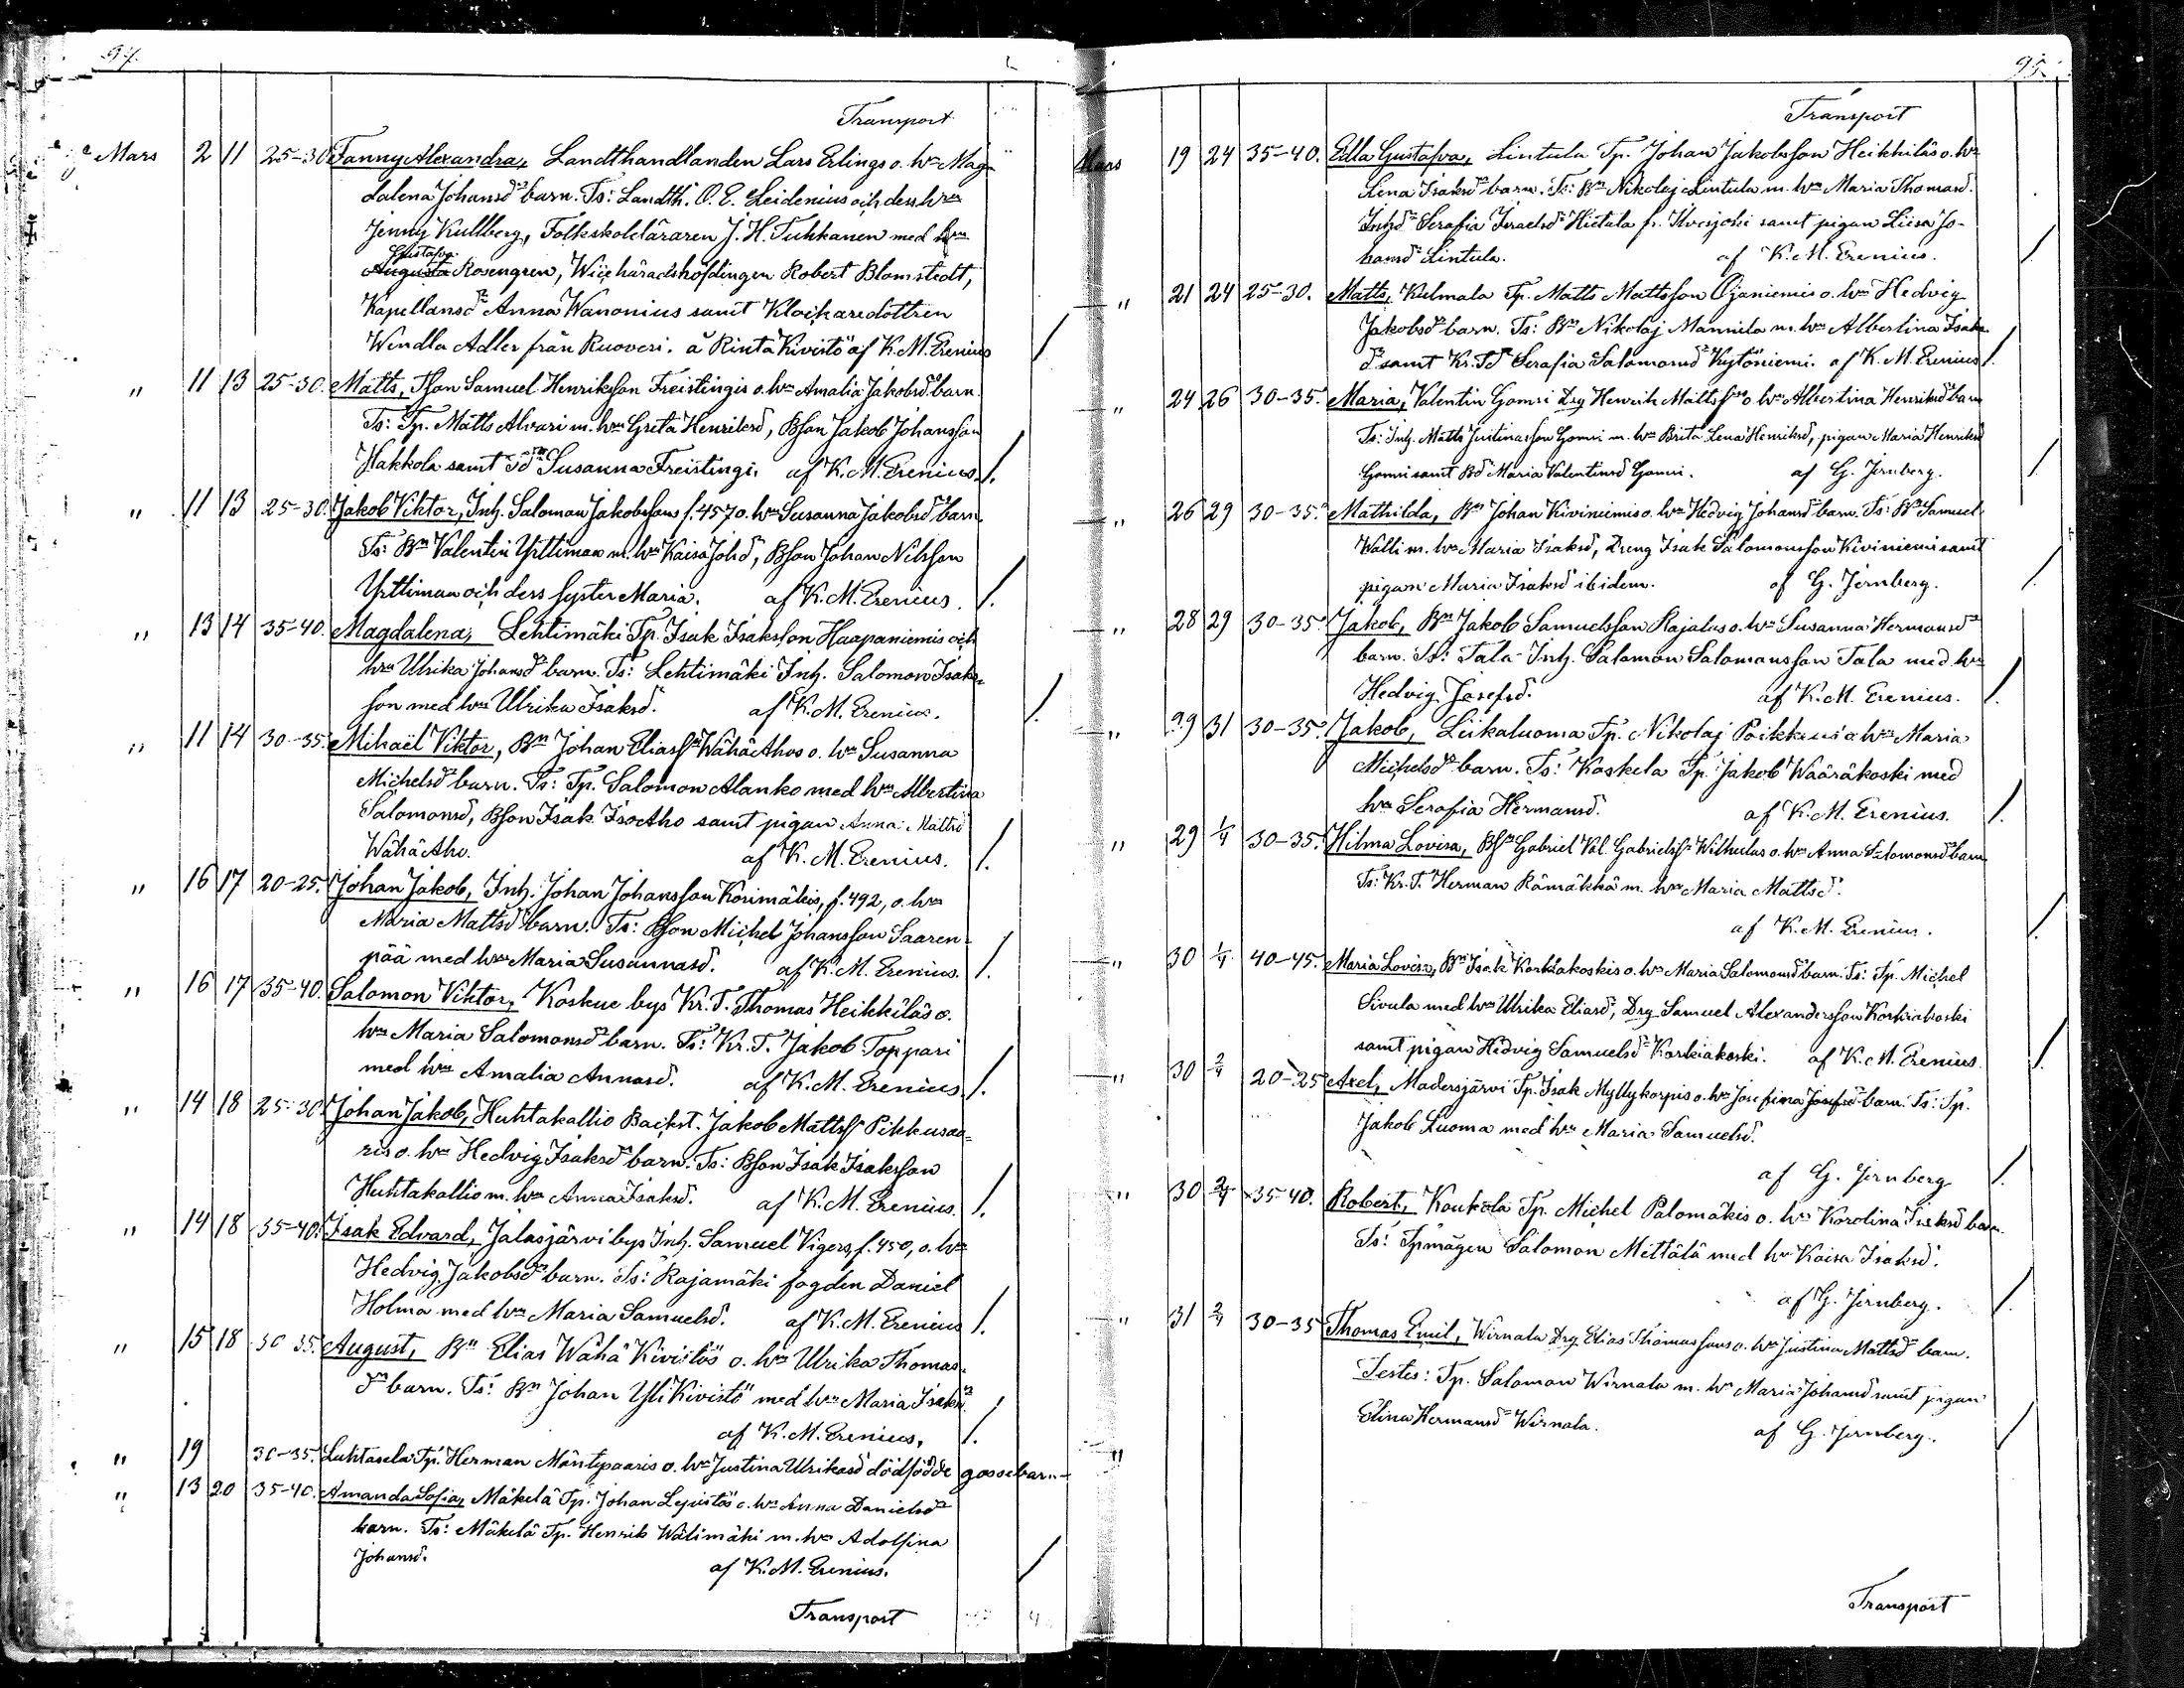 94.
Transport
Mars 2 11 25-30 Fanny Alexandra, Landthandlanden Lars Erlings o. hn Mag-
dalena Johansdr barn. Ts: Landth. O. E. Leidenius och dess hru
Jenny Kullberg, Folkskoleläraren J. H. Tuhkanen med hru
Gustafva
Augusta Rosengren, Wice häradshöfdingen Robert Blomstedt,
Kapellansdr Anna Wanonius samt Klockaredottren
Wendla Adler från Ruovesi. å Rinta Kivistö af K. M. Erenius /
" 11 13 25-30. Matts, Tson Samuel Henriksson Freistingis o. hn Amalia Jakobsdr barn.
Ts: Tp. Matts Alvari m. hn Greta Henriksd, Bson Jakob Johansson
Hakkola samt Td Susanna Freistingi. af K. M. Erenius. /.
" 11 13 25-30. Jakob Viktor, Inh. Salomon Jakobssons f. 457 o. hn Susanna Jakobsdr barn.
Ts: Bn Valentin Yrttimaa m. hn Kaisa Johd, Bson Johan Nilsson
Yrttimaa och dess syster Maria. af K. M. Erenius. /.
" 13 14 35-40. Magdalena, Lehtimäki Tp. Isak Isaksson Haapaniemis och
hru Ulrika Johansdr barn. Ts: Lehtimäki Inh. Salomon Isaks-
son med hn Ulrika Isaksd. af K. M. Erenius. /.
" 11 14 30-35. Mihaël Viktor, Bn Johan Eliass Wähä Ahos o. hn Susanna
Michelsdr barn. Ts: Tp. Salomon Alanko med hn Albertina
Salomonsd, Bson Isak Iso Aho samt pigan Anna Mattsd
Wähä Aho. af K. M. Erenius. /.
" 16 17 20-25. Johan Jakob, Inh. Johan Johansson Korimäkis, f. 492, o. hru
Maria Mattsdr barn. Ts: Bson Michel Johansson Saaren-
pää med hn Maria Susannasd. af K. M. Erenius. /.
" 16 17 35-40. Salomon Viktor, Koskue bys Kr. T. Thomas Heikkiläs o.
hn Maria Salomonsdr barn. Ts: Kr. T. Jakob Toppari
med hn Amalia Annasd. af K. M. Erenius /.
" 14 18 25-30. Johan Jakob, Huhtakallio Backst. Jakob Mattss Pikkusaa-
ris o. hn Hedvig Isaksdr barn. Ts: Bson Isak Isaksson
Huhtakallio m. hn Anna Isaksd. af K. M. Erenius. /.
" 14 18 35-40. Isak Edvard, Jalasjärvi bys Inh. Samuel Vigers, f. 450, o. hn
Hedvig Jakobsdr barn. Ts: Rajamäki fogden Daniel
Holma med hn Maria Samuelsd. af K. M. Erenius /.
" 15 18 30-35. August, Bn Elias Wähä Kivistös o. hn Ulrika Thomas-
dr barn. Ts: Bn Johan Yli Kivistö med hn Maria Isaksd.
af K. M. Erenius. /.
" 19 30-35. Luhtasela Tp. Herman Mäntypaaris o. hn Justina Ulrikasd dödfödde gossebarn
" 13 20 35-40. Amanda Sofia, Mäkelä Tp. Johan Lepistös o. hn Anna Danielsdr
barn. Ts: Mäkelä Tp. Henrik Wälimäki m. hn Adolfina
Johansd. af K. M. Erenius. /
Transport
95.
Transport
Mars 19 24 35-40. Edla Gustafva, Lintula Tp. Johan Jakobsson Heikkiläs o. hn
Lena Isaksdr barn. Ts: Bn Nikolaj Lintula m. hn Maria Thomasd.
Inhdr Serafia Israelsdr Hietala fr. Ilvesjoki samt pigan Liisa Jo-
hansdr Lintula. af K. M. Erenius. /
" 21 24 25-30. Matts, Kulmala Tp. Matts Mattsson Ojaniemis o. hn Hedvig
Jakobsdr barn. Ts: Bn Nikolaj Mannila m. hn Albertina Isaks-
dr samt Kr. Td Serafia Salomonsdr Kytöniemi. af K. M. Erenius /.
" 24 26 30-35. Maria, Valentin Gomsi Drg Henrik Mattss o. hn Albertina Henriksdr barn
Ts: Inh. Matts Justinasson Gomsi m. hn Brita Lena Henriksd, pigan Maria Henriksd
Gomsi samt Bd Maria Valentinsd Gomsi. af G. Jernberg. /.
" 26 29 30-35. Mathilda, Bn Johan Kiviniemis o. hn Hedvig Johansdr barn. Ts: Bn Samuel
Walli m. hn Maria Isaksd, Dreng Isak Salomonsson Kiviniemi samt
pigan Maria Isaksd ibidem. af G. Jernberg. /.
" 28 29 30-35. Jakob, Bn Jakob Samuelsson Rajalas o. hn Susanna Hermansdr
barn. Ts: Tala Inh. Salomon Salomonsson Tala med hn
Hedvig Josefsd. af K. M. Erenius. /.
" 29 31 30-35. Jakob, Liikaluoma Tp. Nikolaj Poikkeus o hn Maria
Michelsdr barn. Ts: Koskela Tp. Jakob Wääräkoski med
hn Serafia Hermansd. af K. M. Erenius. /.
" 29 1/4 30-35. Hilma Lovisa, Bsn Gabriel Val. Gabrielss Wilhulas o. hn Anna Salomonsdr barn
Ts: Kr. T. Herman Rämäkkä m. hn Maria Mattsd.
af K. M. Erenius. /.
" 30 1/4 40-45. Maria Lovisa, Bn Isak Korkiakoskis o. hn Maria Salomonsdr barn. Ts: Tp. Michel
Sivula med hn Ulrika Eliasd, Drg Samuel Alexandersson Korkiakoski
samt pigan Hedvig Samuelsdr Korkiakoski. af K. M. Erenius. /.
" 30 2/4 20-25 Axel, Madersjärvi Tp. Isak Myllykorpis o. hn Josefina Josefsdr barn. Ts: Tp.
Jakob Luoma med hn Maria Samuelsd.
af G. Jernberg /.
" 30 2/4 35-40. Robert, Koukola Tp. Michel Palomäkis o. hn Karolina Isaksd barn.
Ts: Tpmågen Salomon Mettälä med hn Kaisa Isaksd.
af G. Jernberg. /.
" 31 2/4 30-35 Thomas Emil, Wirnala Drg Elias Thomassons o. hn Justina Mattsdr barn.
Testes: Tp. Salomon Wirnala m. hn Maria Johansd samt pigan
Elina Hermansdr Wirnala. af G. Jernberg. /
"
Transport